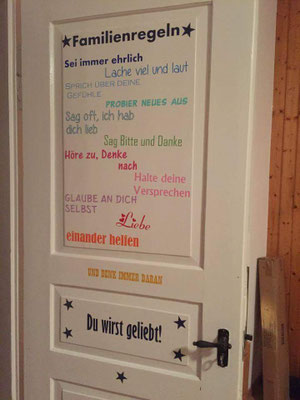 ★Familienregeln★
Sei immer ehrlich
Lache viel und laut
SPRICH ÜBER DEINE
GEFÜHLE
PROBIER NEUES AUS
Sag oft, ich hab
dich lieb
Sag Bitte und Danke
Höre zu, Denke
nach
Halte deine
Versprechen
GLAUBE AN DICH
SELBST
Liebe
einander helfen
UND DENK IMMER DARAN
Du wirst geliebt!